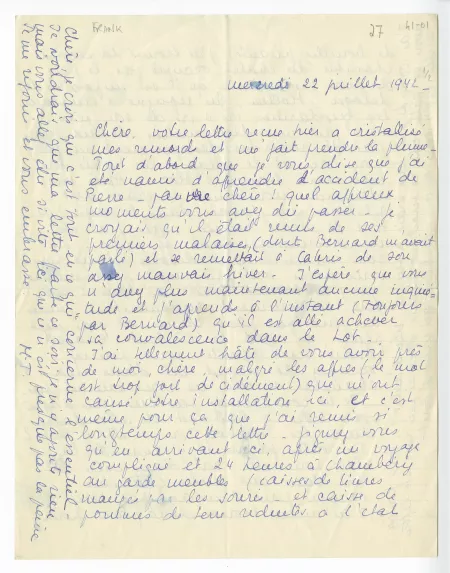 FRANK
27
41-01
mercredi 22 juillet 1942 -
Chère, votre lettre reçue hier a cristallisé
mes remords et me fait prendre la plume -
Tout d'abord que je vous dise que j'ai
été navrée d'apprendre l'accident de
Pierre - pauvre chère ! quel affreux
moments vous avez dû passer - je
croyais qu'il était remis de ses
premiers malaises, (dont Bernard m'avait
parlé) et se remettait à Cabris de son
assez mauvais hiver - J'espère que vous
n'avez plus maintenant aucune inquié-
tude et j'apprends à l'instant (toujours
par Bernard) qu'il est allé achever
sa convalescence dans le Lot -
J'ai tellement hâte de vous avoir près
de moi, chère, malgré les affres (le mot
est trop fort décidément) que m'ont
causé votre installation ici, et c'est
même pour ça que j'ai remis si
longtemps cette lettre - figurez vous
qu'en arrivant ici, après un voyage
compliqué et 24 heures à Chambéry
au garde meubles (caisses de livres
mangées par les souris - et caisse de
pommes de terre réduites à l'état
Chère, je crois que c'est tout ce qui concerne l'essentiel -
Je voudrais que ma lettre parte ce soir je n'y ajoute rien
mais vous allez être si vite ici que ce n'est presque pas la peine
Je me réjouis et vous embrasse